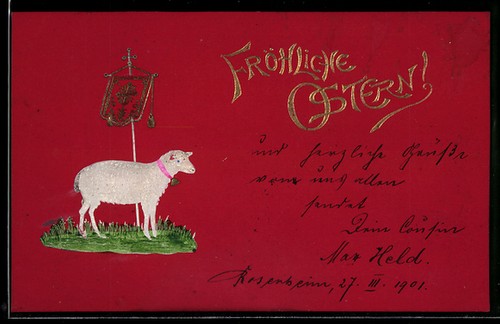 FRÖHLICHE
OSTERN!
und herzliche Grüße
von uns allen
sendet
Dein Cousin
Max Held.
Rosenheim, 27. III. 1901.